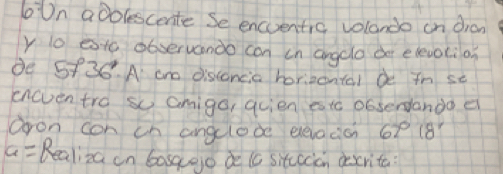 6-Un adolescente Se encuentra volando un dron
y lo esta observando con un angulo de elevacion
de 57°36'. A una distancia horizontal de 7m se
encuentra su amiga, quien esta observando el
dron con un angulo de elevación 67° 18'
a = Realiza un bosquejo de la situación descrita: